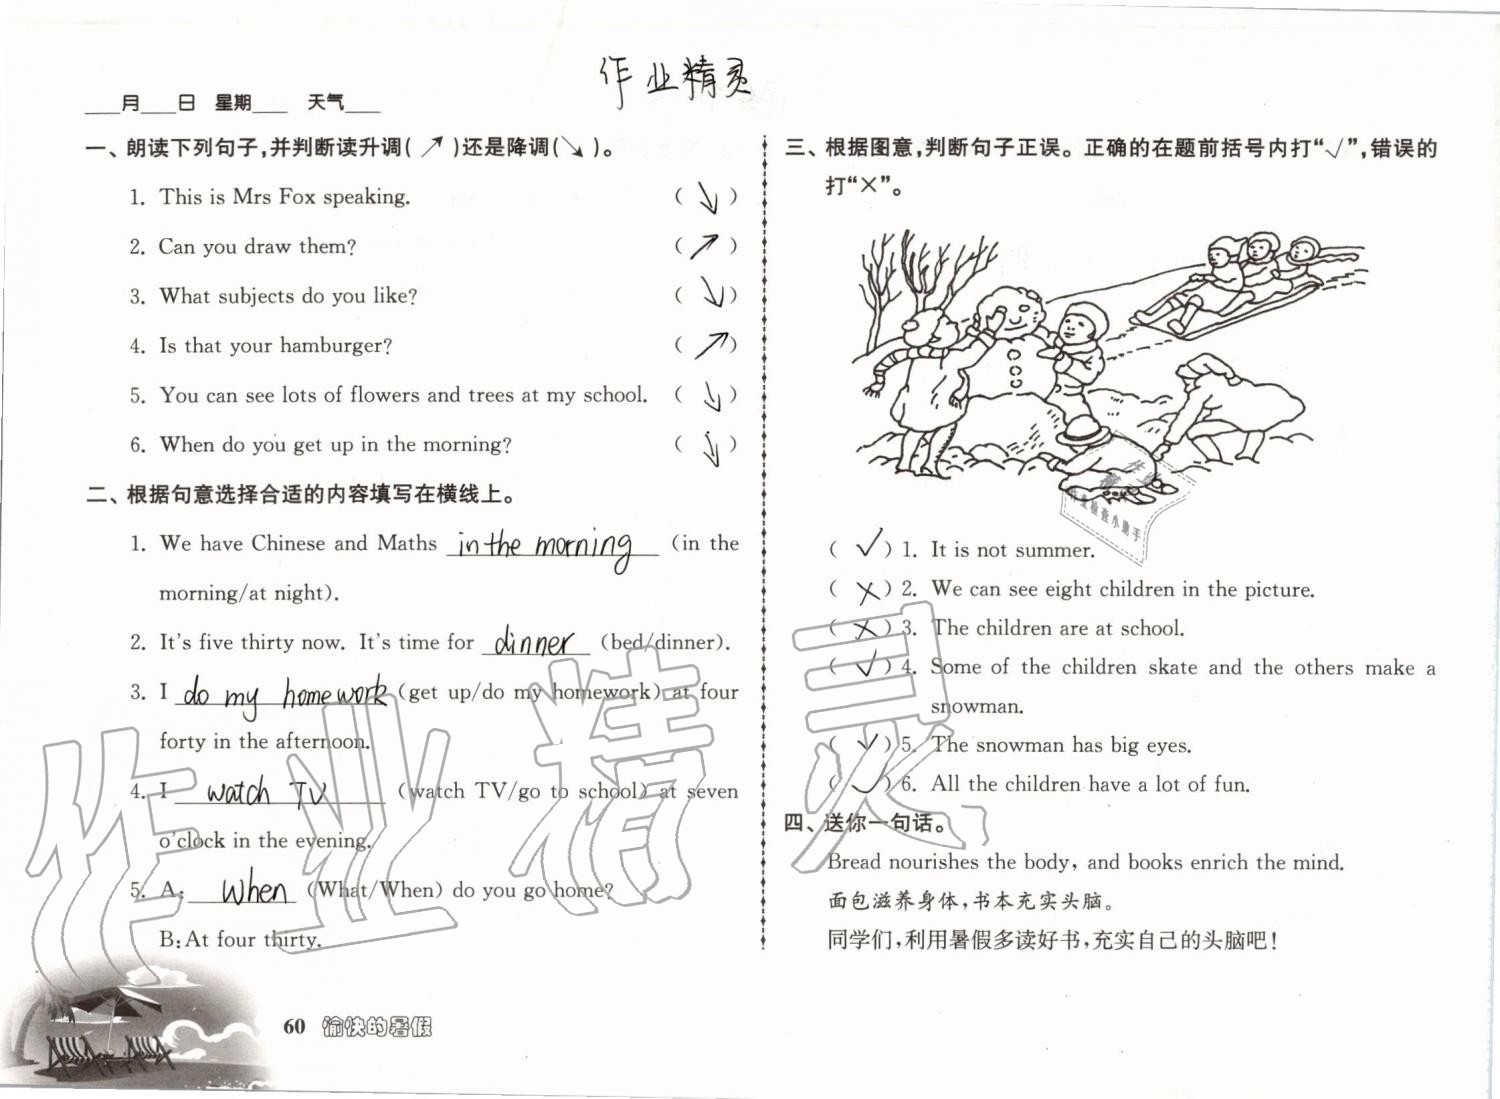 作业精灵
___月___日 星期___ 天气___
一、朗读下列句子,并判断读升调(↗)还是降调(↘)。
1. This is Mrs Fox speaking. (↘)
2. Can you draw them? (↗)
3. What subjects do you like? (↘)
4. Is that your hamburger? (↗)
5. You can see lots of flowers and trees at my school. (↘)
6. When do you get up in the morning? (↘)
二、根据句意选择合适的内容填写在横线上。
1. We have Chinese and Maths in the morning (in the
morning/at night).
2. It's five thirty now. It's time for dinner (bed/dinner).
3. I do my homework (get up/do my homework) at four
forty in the afternoon.
4. I watch TV (watch TV/go to school) at seven
o'clock in the evening.
5. A: When (What/When) do you go home?
B:At four thirty.
60 愉快的暑假
三、根据图意,判断句子正误。正确的在题前括号内打“√”,错误的
打“×”。
作业检查小助手
(√)1. It is not summer.
(×)2. We can see eight children in the picture.
(×)3. The children are at school.
(√)4. Some of the children skate and the others make a
snowman.
(√)5. The snowman has big eyes.
(√)6. All the children have a lot of fun.
四、送你一句话。
Bread nourishes the body, and books enrich the mind.
面包滋养身体,书本充实头脑。
同学们,利用暑假多读好书,充实自己的头脑吧!
作业精灵